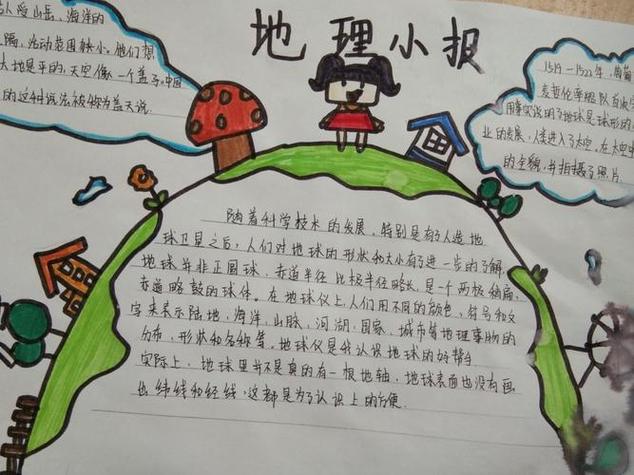 地理小报
人受山岳、海洋的
隔,活动范围缺小。他们想
大地是平的,天空像一个盖子。中国
的这种说法被称为盖天说.
1519—1522年,葡萄
麦哲伦率船队首次
用事实说明了地球是球形的
业的发展,人类进入了太空。在太空
的全貌,并拍摄了照片
随着科学技术的发展,特别是有了人造地
球卫星之后,人们对地球的形状和大小有了进一步的了解,
地球并非正圆球,赤道半径比极半径略长,是一个两极稍扁,
赤道略鼓的球体。在地球仪上人们用不同的颜色,符号和文
字来表示陆地,海洋,山脉,河湖,国家,城市等地理事物的
分布,形状和名称等,地球仪是我认识地球的好帮手
实际上,地球里并不是真的有一根地轴,地球表面也没有画
出纬线和经线,这都是为了认识上的方便.